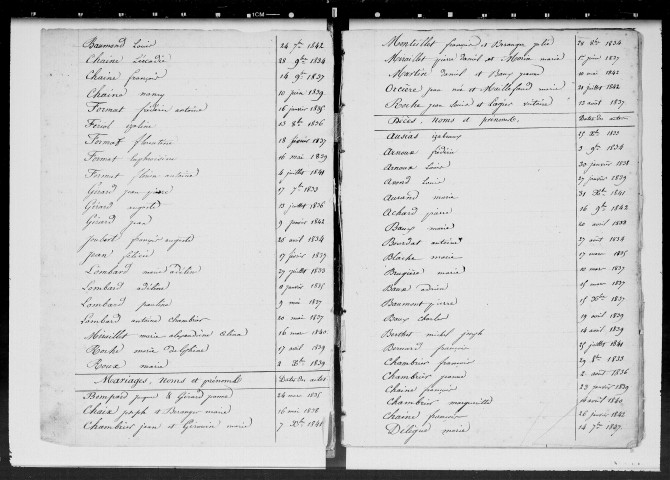 1CM
Baumond Louis 24 7bre 1842
Chaine Léocadie 28 9bre 1834
Chaine françois 14 9bre 1837
Chaine nancy 10 juin 1839
Fermat frédéric antoine 16 janvier 1835
Férol 13 8bre 1836
Fermat florentine 18 février 1837
Fermat euphrosine 16 mai 1839
Fermat antoine 4 juillet 1841
Gérard jean pierre 17 7bre 1833
Gérard auguste 13 juillet 1836
Gérard jean 9 janvier 1842
Joubert françois auguste 26 août 1834
Jean félicie 17 février 1837
Lombard marie adeline 27 juillet 1833
Lombard adeline 9 janvier 1835
Lombard pauline 9 mai 1837
Lombard antoine chambrier 20 mai 1837
Miraillet marie alexandrine Elina 16 mar 1840
Roche marie delphine 17 avril 1839
Roux marie 2 Xbre 1839
Mariages, noms et prénoms Dates des actes
Bompard jaques & Gérard 24 mar 1835
Chaix joseph et Beranger marie 16 mai 1838
Chambrier jean et Germain marie 7 Xbre 1841
Monteillet françois et Beranger julie 28 8bre 1834
Miraillet pierre daniel et Morin marie 1er juin 1837
Martin daniel et Baux 10 mai 1842
Orcière jean et marie 21 juillet 1842
Roche jean Louis et Lagier victoire 13 août 1837
Décès, noms et prénoms Dates des actes
Ausias 25 Xbre 1833
Arnoux frédéric 3 9bre 1834
Arnoux Louis 30 janvier 1838
Arond Louise 27 janvier 1839
Aurand marie 31 Xbre 1841
Achard pierre 16 9bre 1842
Baux marie 20 avril 1833
Bourdat antoine 27 août 1834
Blache marie 17 mar 1835
Brugière marie 10 mar 1837
Baux adrien 15 mar 1837
Baumont pierre 15 Xbre 1837
Baux charles 19 avril 1839
Berthet michel joseph 14 avril 1839
Bernard françois 25 juillet 1841
Chambrier françois 29 8bre 1833
Chambrier 2 août 1836
Chaine françois 22 janvier 1839
Chambrier marguerite 16 avril 1840
Chaine françois 26 janvier 1842
Délègue marie 14 7bre 1837